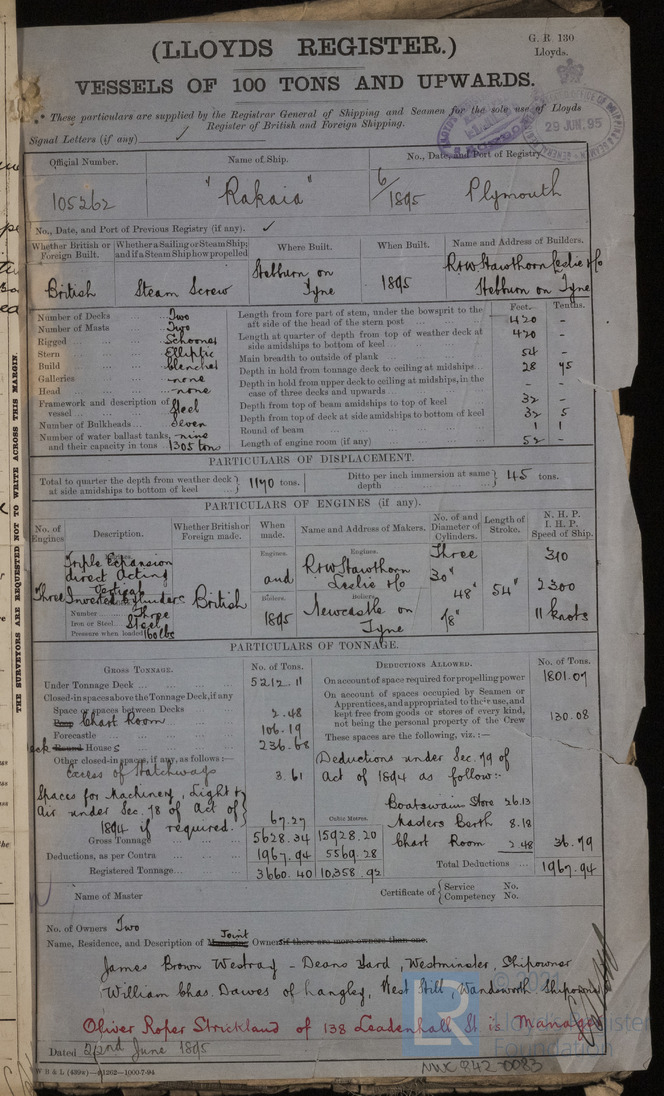 G. R. 130
Lloyds.
(LLOYDS REGISTER.)
VESSELS OF 100 TONS AND UPWARDS.
29 JUN. 95
*** These particulars are supplied by the Registrar General of Shipping and Seamen for the sole use of Lloyds
Register of British and Foreign Shipping.
Signal Letters (if any) ✓
Official Number. Name of Ship. No., Date, and Port of Registry
105262 "Rakaia" 6/1895 Plymouth
No., Date, and Port of Previous Registry (if any). ✓
Whether British or Foreign Built. Whether a Sailing or Steam Ship; and if a Steam Ship how propelled Where Built. When Built. Name and Address of Builders.
British Steam Screw Hebburn on Tyne 1895 R & W Hawthorn Leslie & Co Hebburn on Tyne
Feet. Tenths.
Number of Decks Two
Number of Masts Two
Rigged Schooner
Stern Elliptic
Build Clencher
Galleries none
Head none
Framework and description of vessel Steel
Number of Bulkheads Seven
Number of water ballast tanks, nine
and their capacity in tons 1305 tons
Length from fore part of stem, under the bowsprit to the aft side of the head of the stern post 420 -
Length at quarter of depth from top of weather deck at side amidships to bottom of keel 420 -
Main breadth to outside of plank 54 -
Depth in hold from tonnage deck to ceiling at midships 28 45
Depth in hold from upper deck to ceiling at midships, in the case of three decks and upwards - -
Depth from top of beam amidships to top of keel 32 -
Depth from top of deck at side amidships to bottom of keel 32 5
Round of beam 1 1
Length of engine room (if any) 52 -
PARTICULARS OF DISPLACEMENT.
Total to quarter the depth from weather deck at side amidships to bottom of keel 1190 tons. Ditto per inch immersion at same depth 45 tons.
PARTICULARS OF ENGINES (if any).
No. of Engines Description. Whether British or Foreign made. When made. Name and Address of Makers. No. of and Diameter of Cylinders. Length of Stroke. N. H. P. I. H. P. Speed of Ship.
Three
Triple Expansion
direct Acting
Vertical
Inverted Cylinders
Number Three
Iron or Steel Steel
Pressure when loaded 160 lbs
British
Engines.
and
Boilers.
1895
Engines.
R & W Hawthorn
Leslie & Co
Boilers.
Newcastle on
Tyne
Three
30"
48"
54"
310
2300
11 knots
PARTICULARS OF TONNAGE.
GROSS TONNAGE. No. of Tons.
Under Tonnage Deck 5212.11
Closed-in spaces above the Tonnage Deck, if any
Space or spaces between Decks
Poop Chart Room 2.48
Forecastle 106.19
Round Houses 236.68
Other closed-in spaces, if any, as follows:—
Excess of Hatchways 3.61
Spaces for Machinery, Light &
Air under Sec. 78 of Act of
1894 if required. 67.27
Cubic Metres.
Gross Tonnage 5628.34 15928.20
Deductions, as per Contra 1967.94 5569.28
Registered Tonnage 3660.40 10358.92
DEDUCTIONS ALLOWED. No. of Tons.
On account of space required for propelling power 1801.07
On account of spaces occupied by Seamen or Apprentices, and appropriated to their use, and kept free from goods or stores of every kind, not being the personal property of the Crew 130.08
These spaces are the following, viz.:—
Deductions under Sec. 79 of
Act of 1894 as follow:-
Boatswains Store 26.13
Masters Berth 8.18
Chart Room 2.48 36.79
Total Deductions 1967.94
Name of Master Certificate of { Service No. Competency No.
No. of Owners Two
Name, Residence, and Description of Managing Joint Owners if there are more owners than one.
James Brown Westray - Deans Yard, Westminster, Shipowner
William Chas. Dawes of Langley, West Hill, Wandsworth Shipowner
Oliver Roper Strickland of 138 Leadenhall St is Manager
Dated 22nd June 1895
W B & L (439w)—51262—1000-7-94
NWC 842-0083
THE SURVEYORS ARE REQUESTED NOT TO WRITE ACROSS THIS MARGIN.
© 2021
LR
Lloyd's Register
Foundation